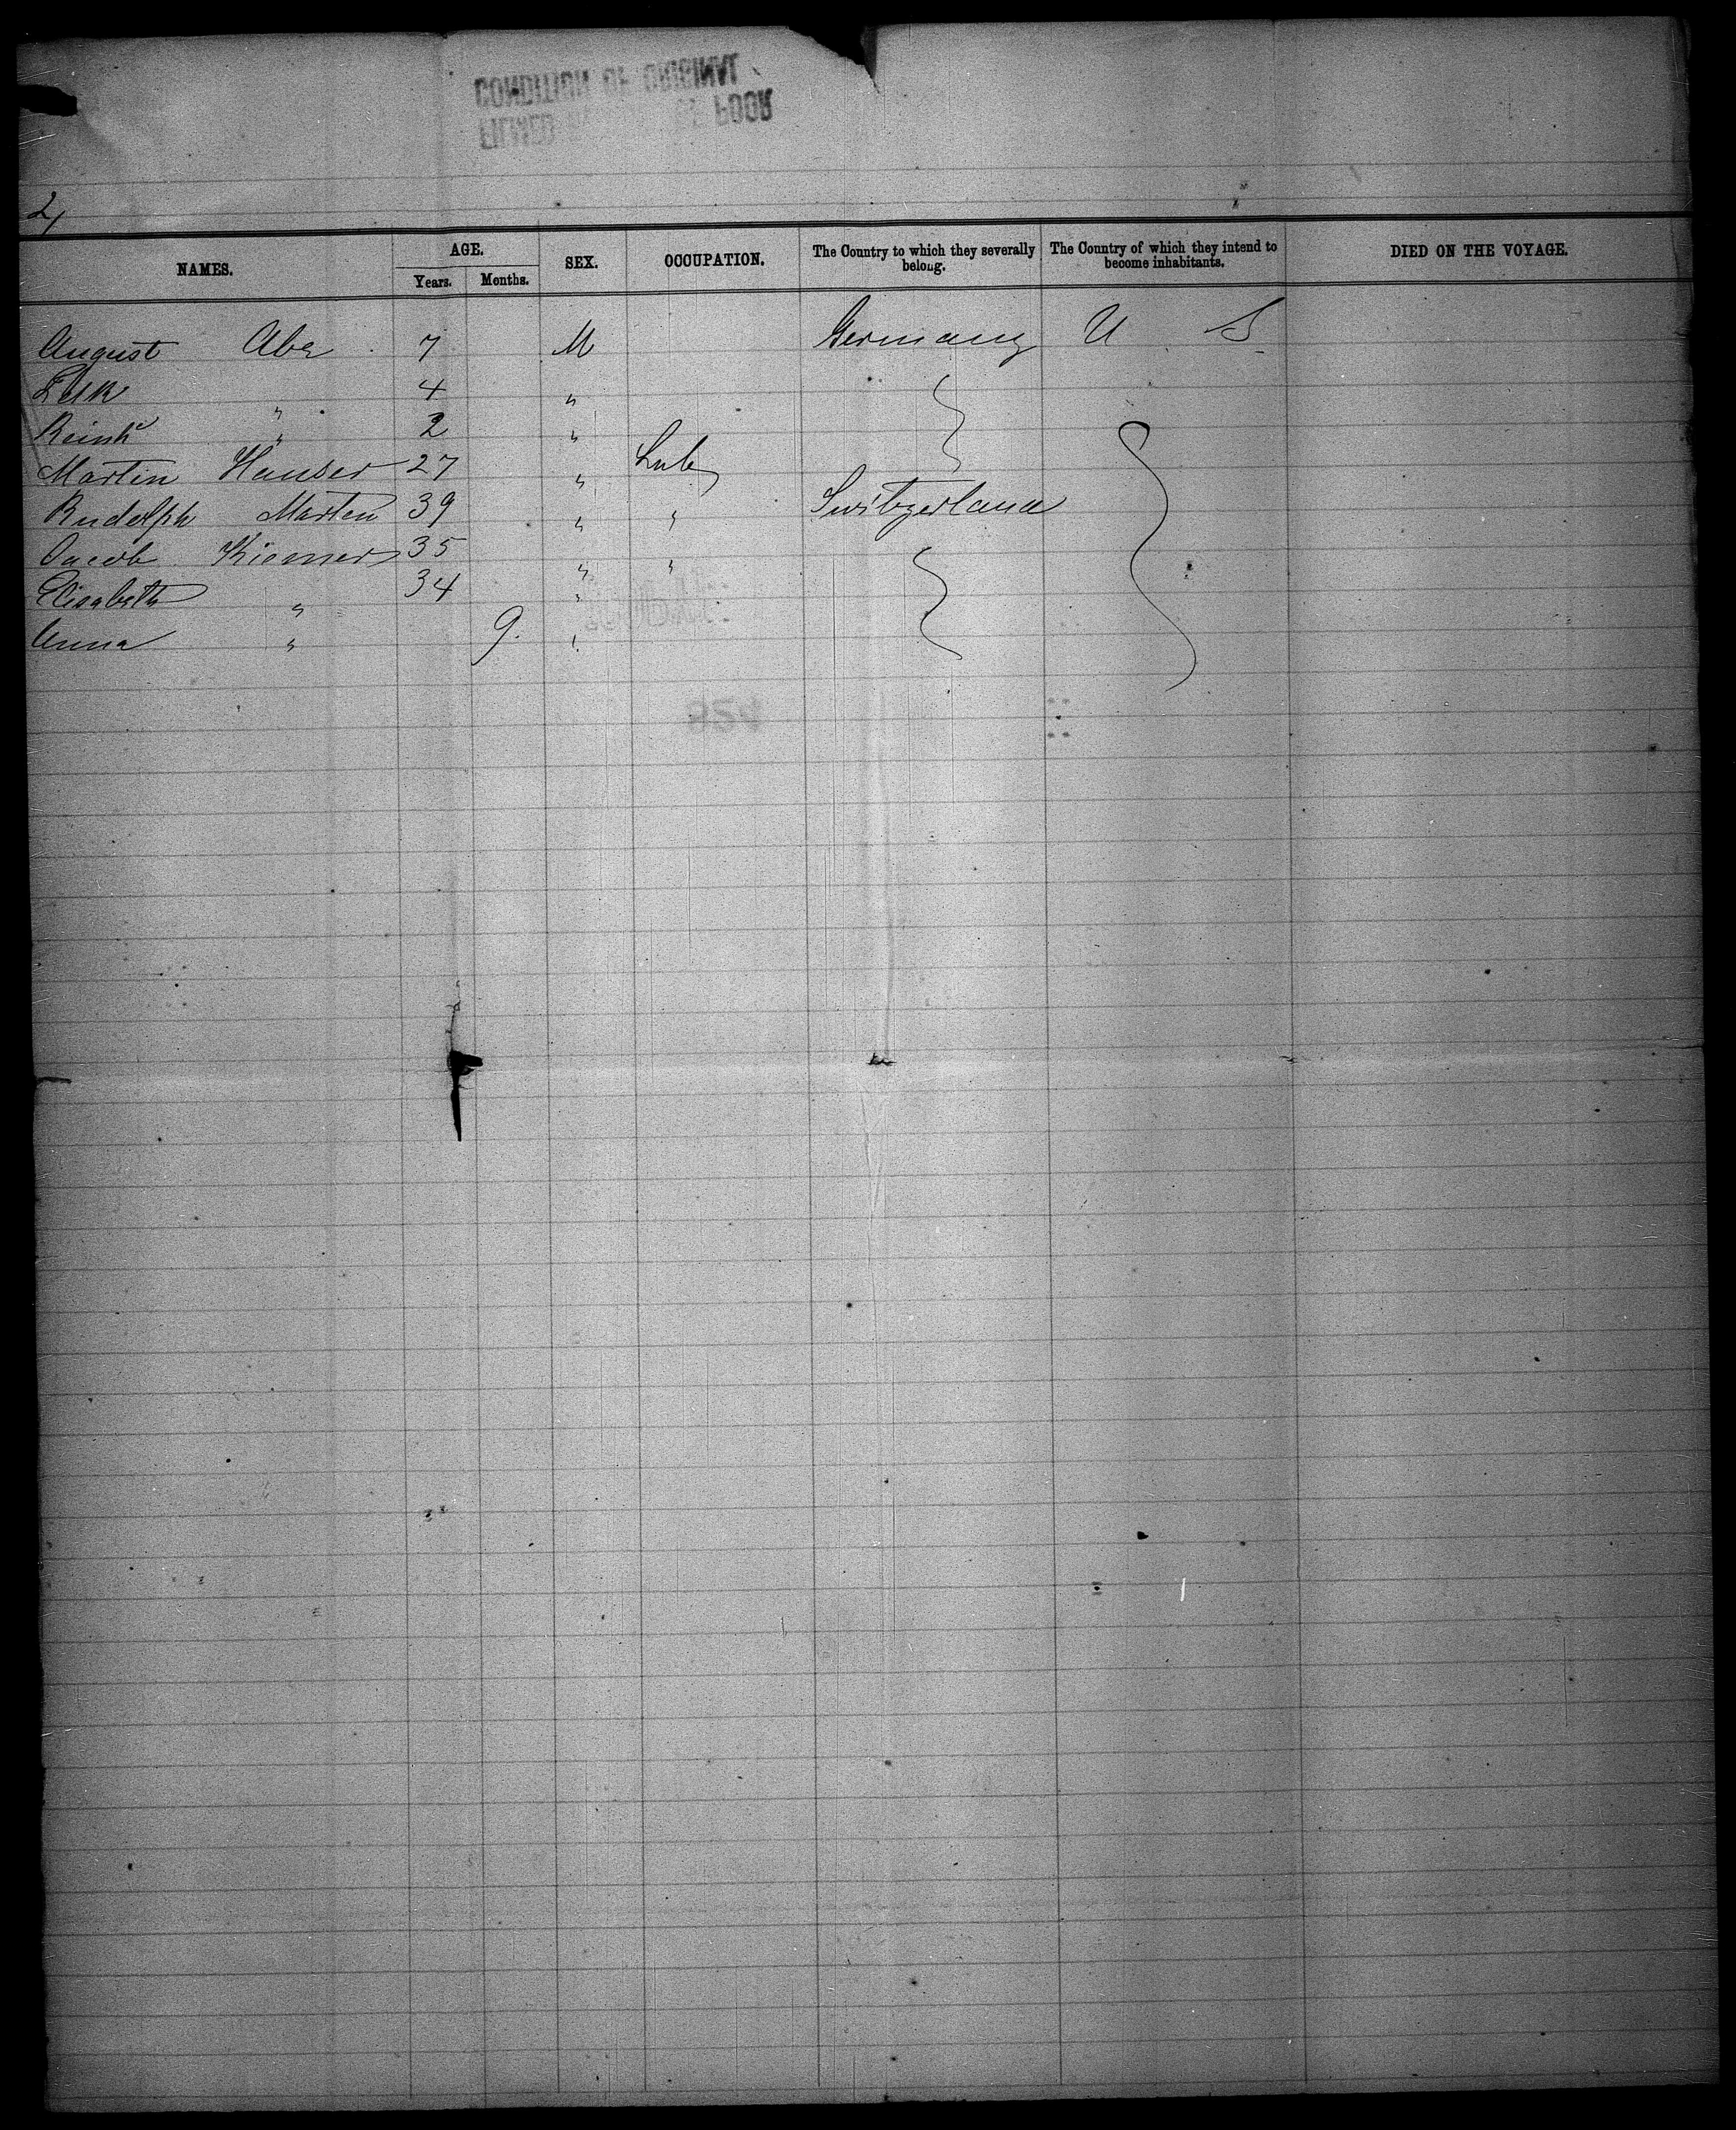 CONDITION OF ORIGINAL
POOR
2/
NAMES. AGE. SEX. OCCUPATION. The Country to which they severally belong. The Country of which they intend to become inhabitants. DIED ON THE VOYAGE.
Years. Months.
August 7 M Germany U S
" 4 "
Reinhd " 2 "
Martin Hauser 27 "
Rudolph Marten 39 " " Switzerland
Jacob 35 " "
Elisabeth " 34 "
Anna " 9. "